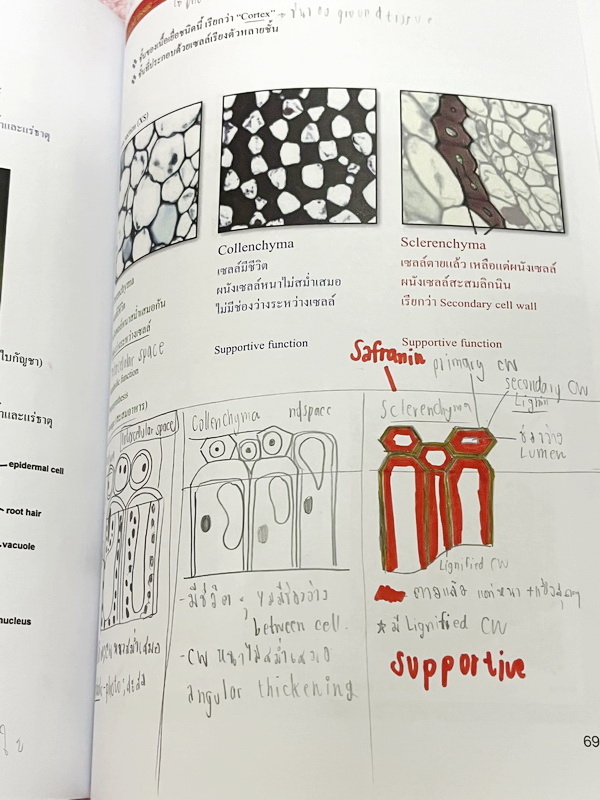 ชั้นของเนื้อเยื่อชนิดนี้ เรียกว่า "Cortex" → ground tissue
ชั้นที่ประกอบด้วยเซลล์เรียงตัวหลายชั้น
และแร่ธาตุ
(XS)
Collenchyma
เซลล์มีชีวิต
ผนังเซลล์หนาไม่สม่ำเสมอ
ไม่มีช่องว่างระหว่างเซลล์
Supportive function
Sclerenchyma
เซลล์ตายแล้ว เหลือแต่ผนังเซลล์
ผนังเซลล์สะสมลิกนิน
เรียกว่า Secondary cell wall
Supportive function
space
ใบกัญชา)
และแร่ธาตุ
epidermal cell
root hair
vacuole
nucleus
Safranin
primary CW
secondary CW
Lignin
ช่องว่าง
Lumen
Intercellular space
Collenchyma
space
Sclerenchyma
Lignified CW
- มีชีวิต ; ไม่มีช่องว่าง
between cell.
- CW หนาไม่สม่ำเสมอ
angular thickening
ตายแล้ว
★ มี Lignified CW
supportive
69